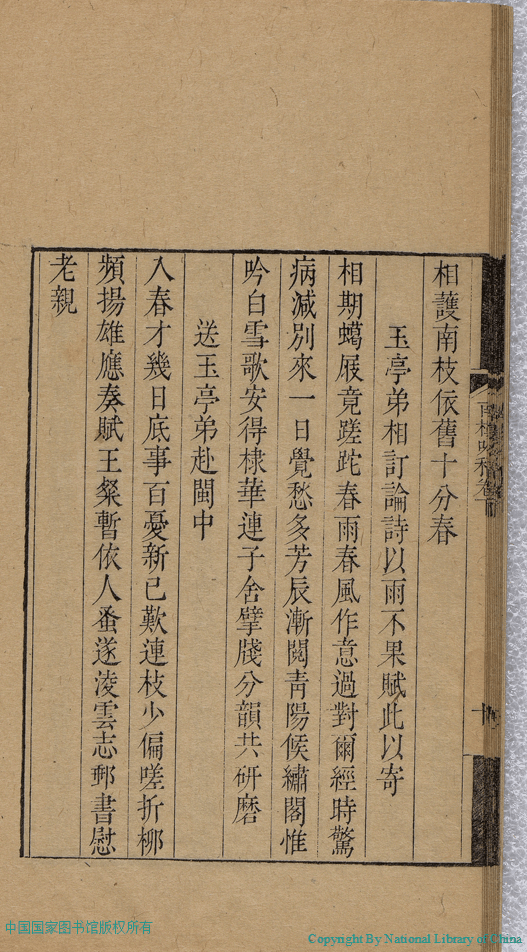 相護南枝依舊十分春
玉亭弟相訂論詩以雨不果賦此以寄
相期蠟屐竟蹉跎春雨春風作意過對爾經時驚
病減別來一日覺愁多芳辰漸闊青陽候繡閣惟
吟白雪歌安得棣華連子舍擘牋分韻共研磨
送玉亭弟赴閩中
入春才幾日底事百憂新已歎連枝少偏嗟折柳
頻揚雄應奏賦王粲暫依人蚤遂淩雲志郵書慰
老親
中国国家图书馆版权所有
Copyright By National Library of China